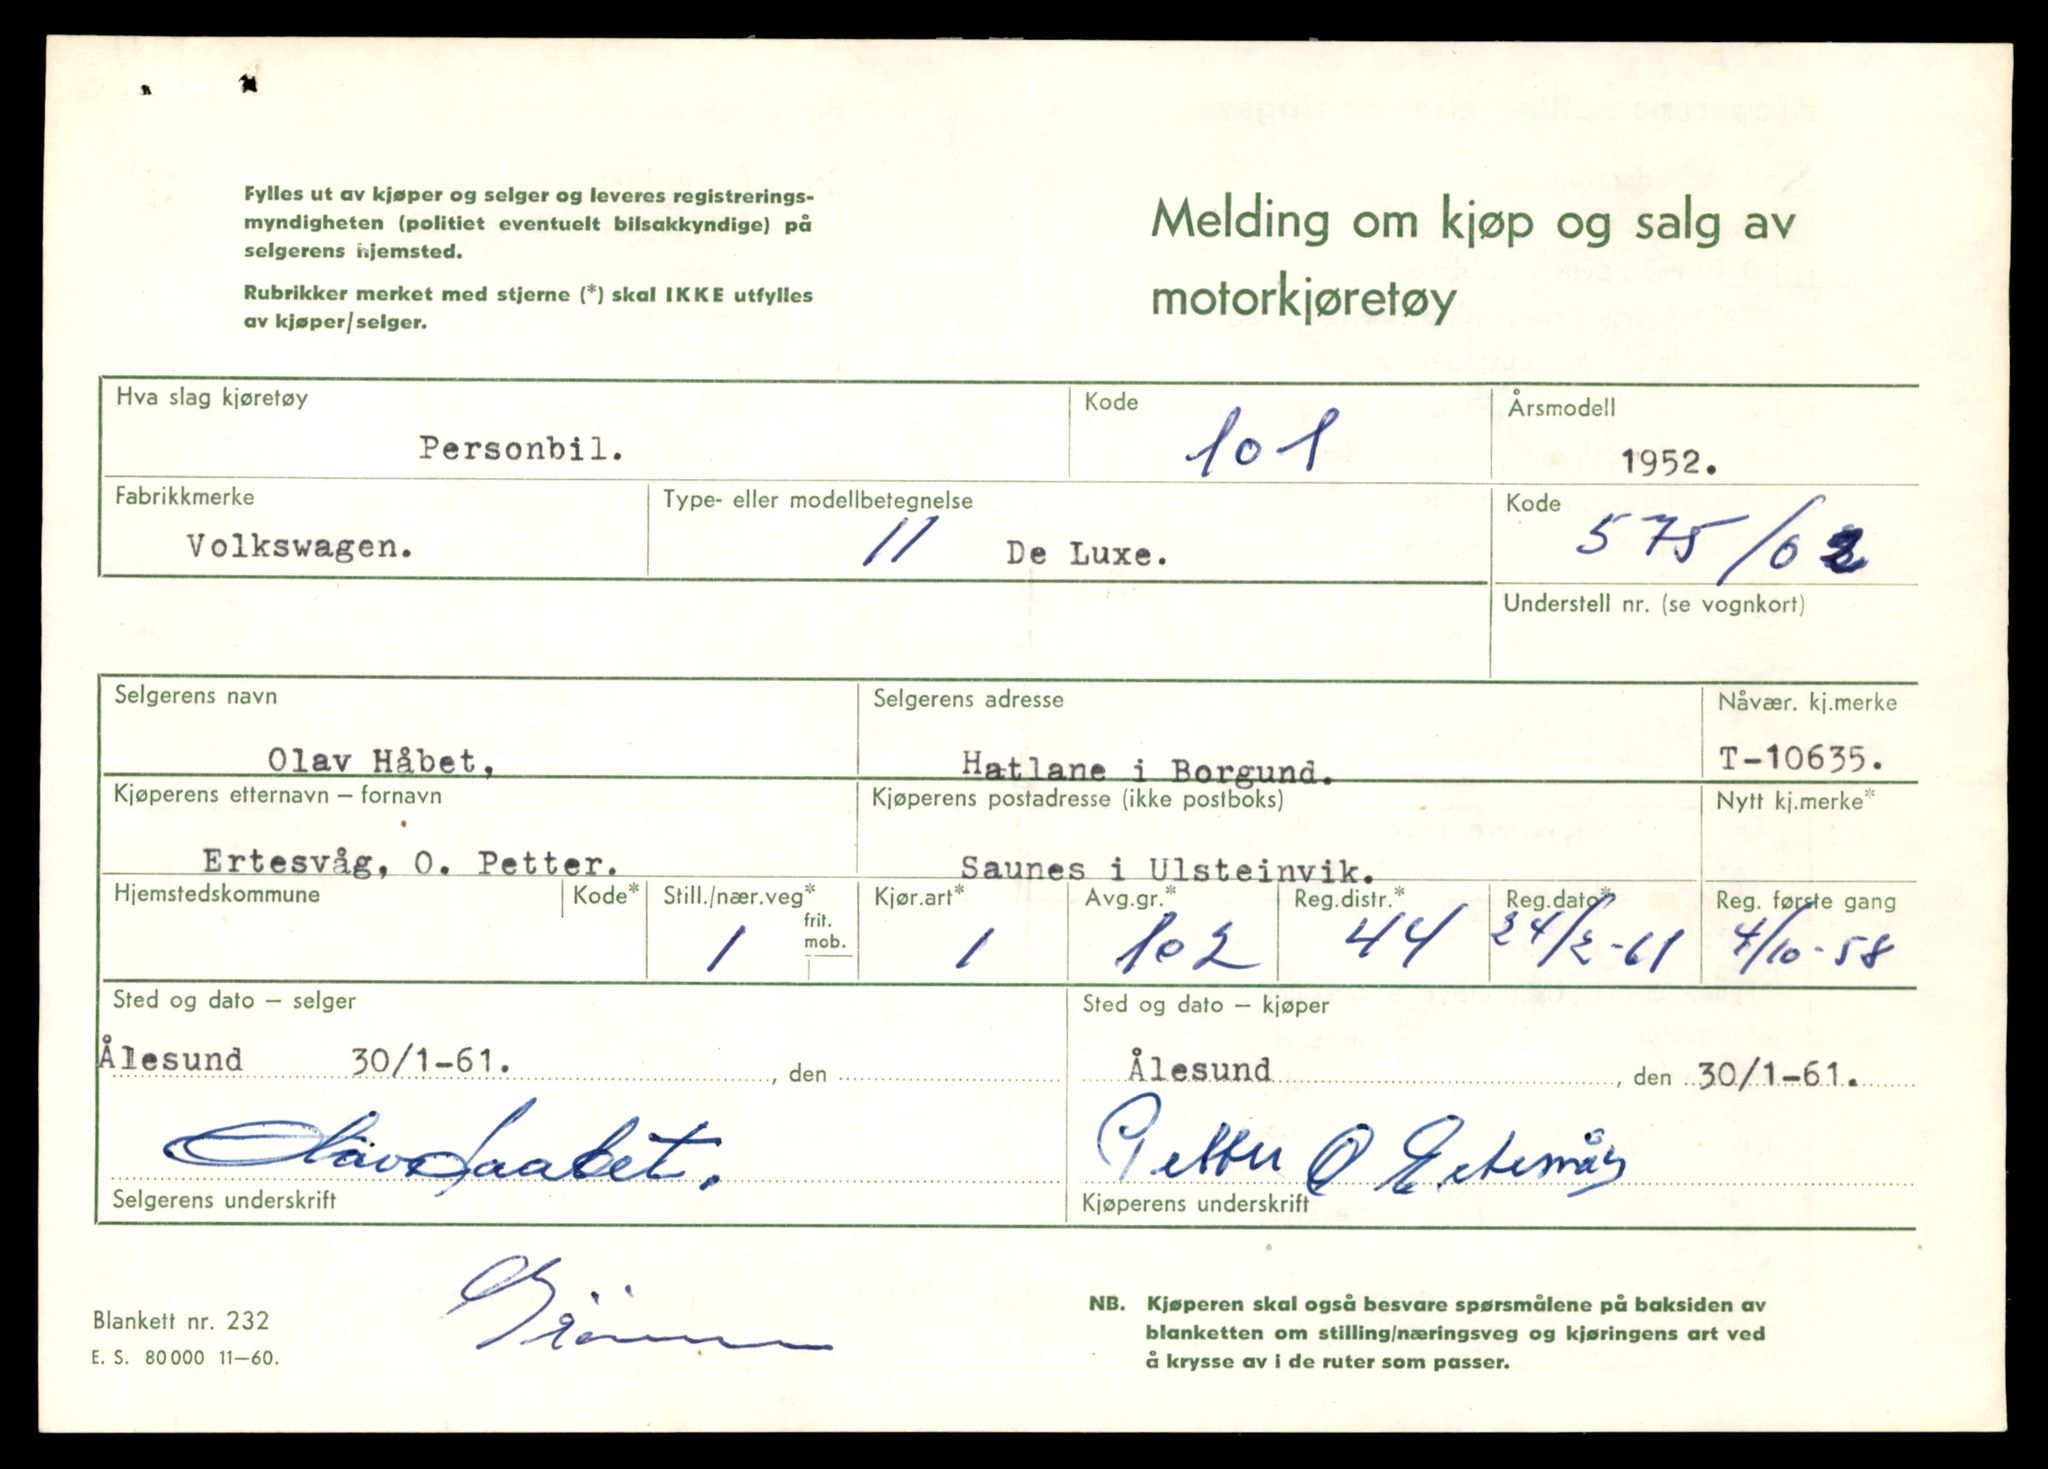 Fylles ut av kjøper og selger og leveres registrerings-
myndigheten (politiet eventuelt bilsakkyndige) på
selgerens hjemsted.
Rubrikker merket med stjerne (*) skal IKKE utfylles
av kjøper/selger.
Melding om kjøp og salg av
motorkjøretøy
Hva slag kjøretøy
Personbil.
Kode
101
Årsmodell
1952.
Fabrikkmerke
Volkswagen.
Type- eller modellbetegnelse
11 De Luxe.
Kode
575/02
Understell nr. (se vognkort)
Selgerens navn
Olav Håbet,
Selgerens adresse
Hatlane i Borgund.
Nåvær. kj.merke
T-10635.
Kjøperens etternavn – fornavn
Ertesvåg, O. Petter.
Kjøperens postadresse (ikke postboks)
Saunes i Ulsteinvik.
Nytt kj.merke*
Hjemstedskommune
Kode*
Still./nær.veg*
frit.
mob.
1
Kjør.art*
1
Avg.gr.*
102
Reg.distr.*
44
Reg.dato*
24/2-61
Reg. første gang
4/10-58
Sted og dato – selger
Ålesund 30/1-61. , den
Olav Haabet.
Selgerens underskrift
Sted og dato – kjøper
Ålesund , den 30/1-61.
Petter O Ertesvåg
Kjøperens underskrift
Blankett nr. 232
E. S. 80 000 11–60.
NB. Kjøperen skal også besvare spørsmålene på baksiden av
blanketten om stilling/næringsveg og kjøringens art ved
å krysse av i de ruter som passer.